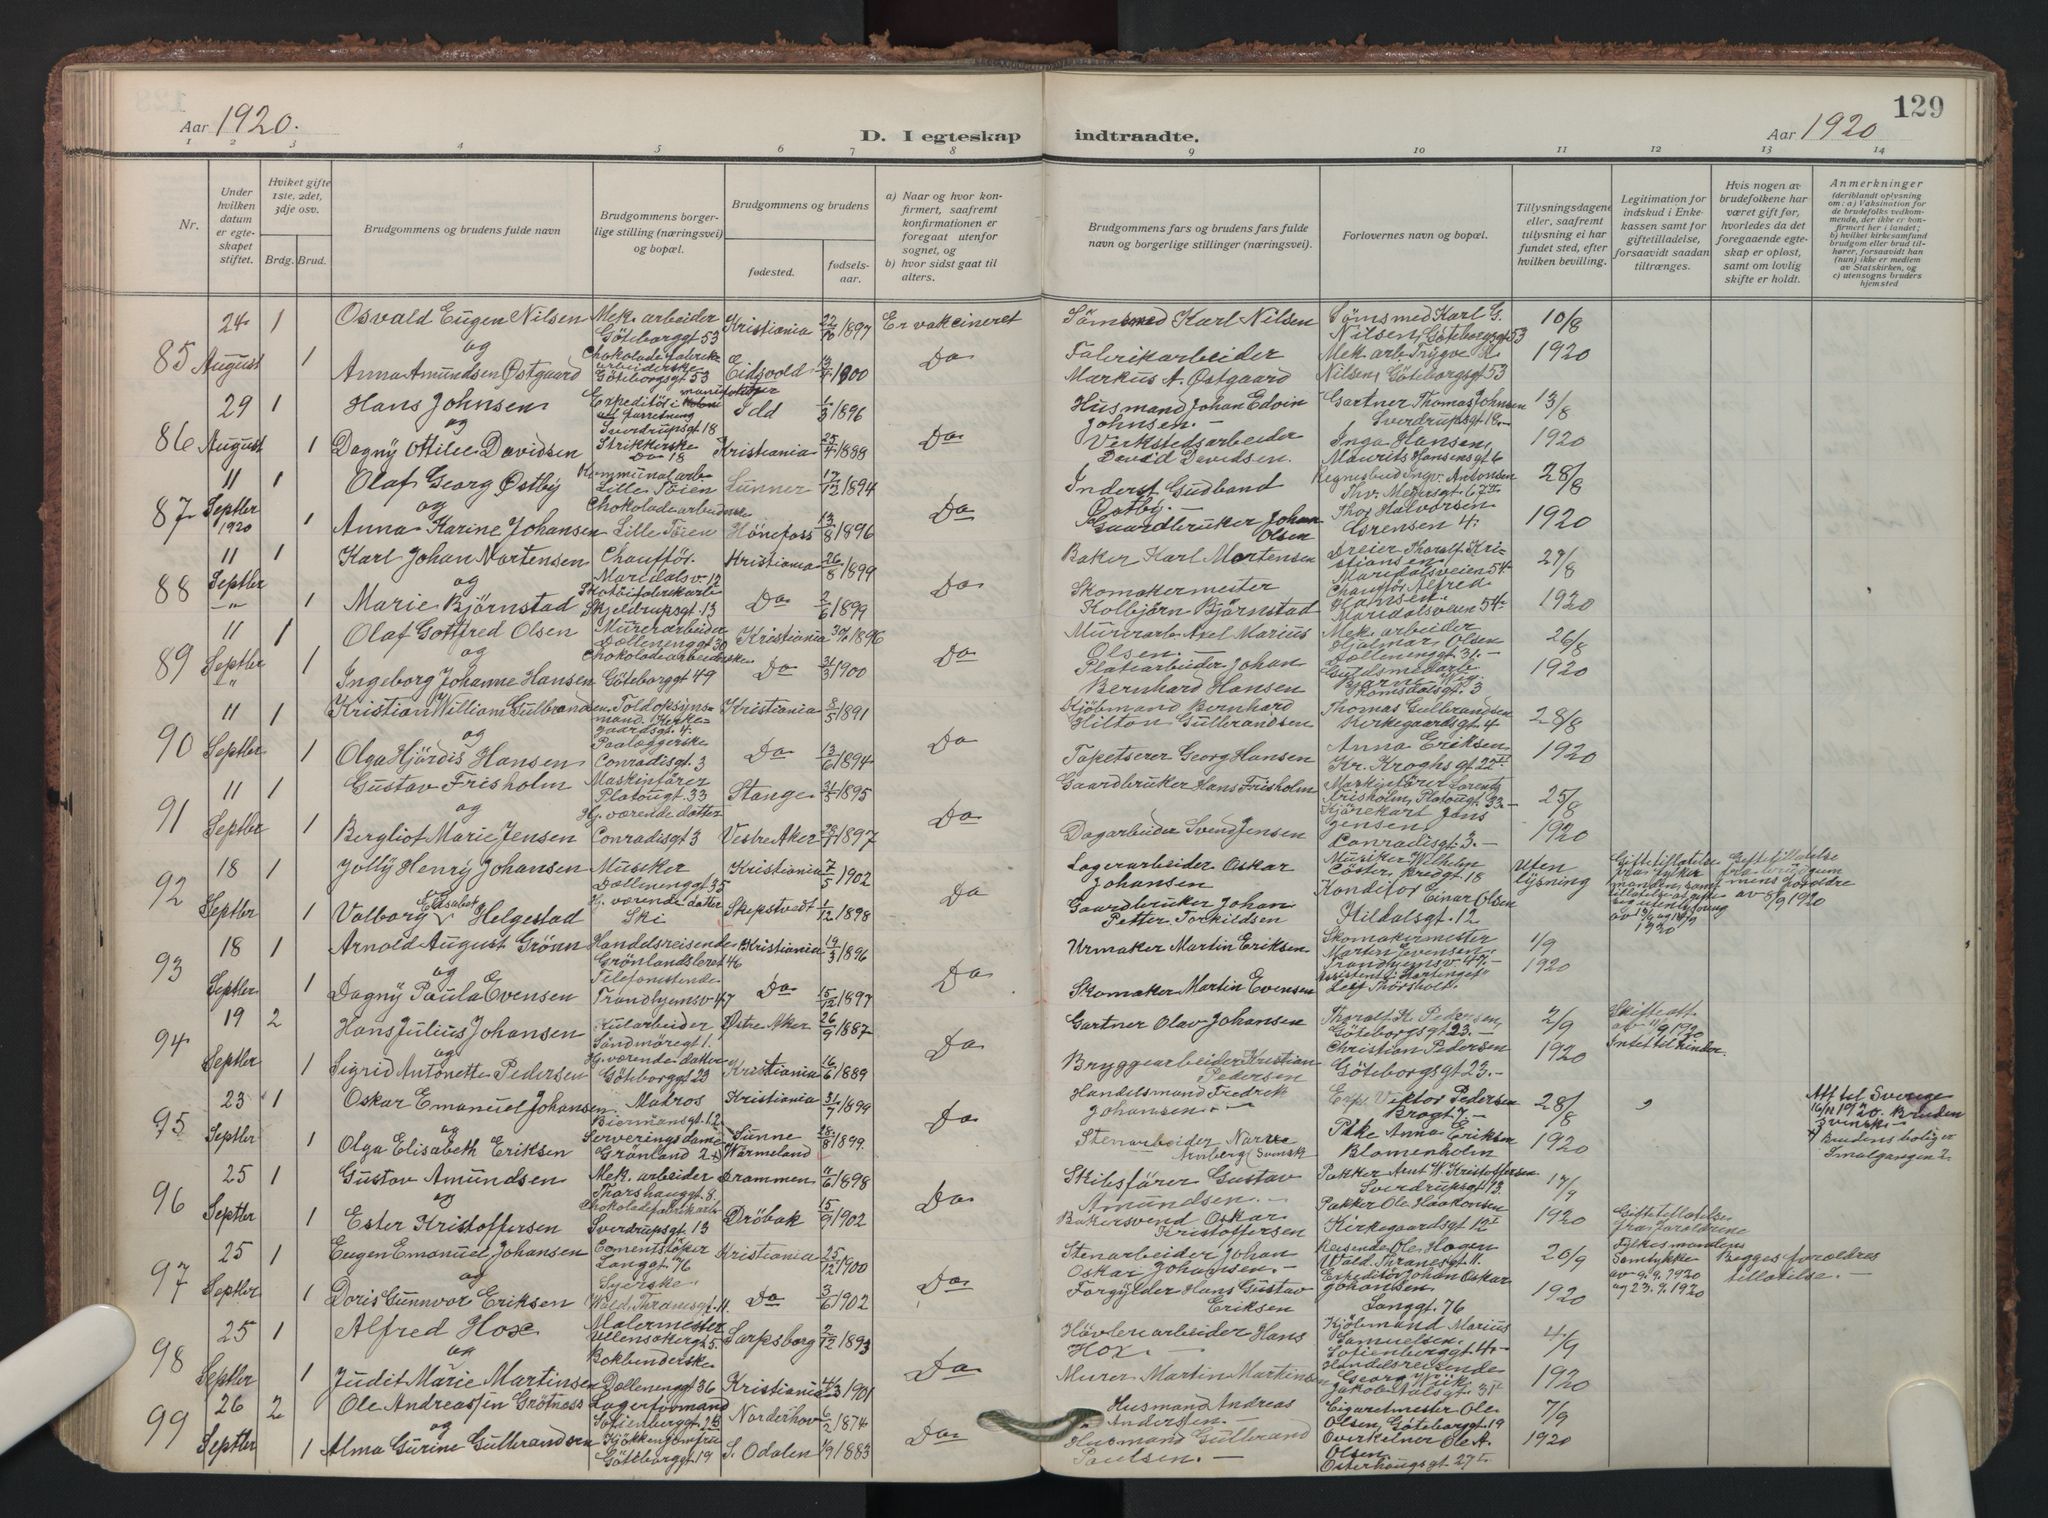 129
Aar 1920.
D. I egteskap indtraadte.
Aar 1920
1 2 3 4 5 6 7 8 9 10 11 12 13 14
Nr.
Under hvilken datum er egteskapet stiftet.
Hviket gifte 1ste, 2det, 3dje osv.
Brdg. Brud.
Brudgommens og brudens fulde navn
Brudgommens borgerlige stilling (næringsvei) og bopæl.
Brudgommens og brudens
fødested.
fødselsaar.
a) Naar og hvor konfirmert, saafremt konfirmationen er foregaat utenfor sognet, og
b) hvor sidst gaat til alters.
Brudgommens fars og brudens fars fulde navn og borgerlige stillinger (næringsvei).
Forlovernes navn og bopæl.
Tillysningsdagene eller, saafremt tillysning ei har fundet sted, efter hvilken bevilling.
Legitimation for indskud i Enkekassen samt for giftetilladelse, forsaavidt saadan tiltrænges.
Hvis nogen av brudefolkene har været gift før, hvorledes da det foregaaende egteskap er opløst, samt om lovlig skifte er holdt.
Anmerkninger
(deriblandt oplysning om: a) Vaksination for de brudefolks vedkommende, der ikke er konfirmert her i landet; b) hvilket kirkesamfund brudgom eller brud tilhører, forsaavidt han (hun) ikke er medlem av Statskirken, og c) utensogns bruders hjemsted
85 24 August 1 Osvald Eugen Nilsen Mek. arbeider Göteborggt 53 Kristiania 22/10 1897 Er vakcineret Sömsmed Karl Nilsen Sömsmed Karl G. Nilsen, Göteborgsgt 53 10/8
og
1 Anna Amundsen Østgaard Chokoladefabrikarbeiderske Göteborgsgt 53 Eidsvold 13/4 1900 Do Fabrikarbeider Markus A. Østgaard Mek. arb. Trygve R. Nilsen, Göteborgsgt 53 1920
86 29 August 1 Hans Johnsen Sverdrupsgt 18 Idd 1/3 1896 Husmand Johan Edvin Johnsen.- Gartner Thomas Johnsen Sverdrupsgt 18.- 13/8
og
1 Dagny Otilie Davidsen Strikkerske Do 18 Kristiania 25/4 1899 Do Verkstedsarbeider David Davidsen. Inga Hansen, Maurits Hansensgt 6 1920
87 11 Septbr 1920 1 Olaf Georg Østby Kommunalarb. Lille Töien Lunner 17/12 1894 Inderst Gudband Østby.- 28/8
og
1 Anna Karine Johansen Chokoladearbeiderske Lille Töien Hönefoss 13/8 1896 Do Gaardbruker Johan Olsen Thor Halvorsen Sorensen 4. 1920
88 11 Septbr 1 Karl Johan Mortensen Chauffør. Maridalsv. 12 Kristiania 26/8 1899 Baker Karl Mortensen Dreier Thoralf Kristiansen Maridalsveien 54 27/8
og
1 Marie Björnstad Skjeldrupsgt. 13 Do 2/6 1899 Do Skomakermester Kolbjörn Björnstad Chaufför Alfred Hansen. Maridalsveien 54 1920
89 11 Septbr 1 Olaf Gottfred Olsen Murerarbeider Dællenenggt 30 Kristiania 1896 Murerarb. Axel Marius Olsen.- Mek. arbeider Hjalmar Olsen Dællenenggt 31.- 26/8
og
1 Ingeborg Johanne Hansen Chokoladearbeiderske Göteborggt 49 Do 31/3 1900 Do Platearbeider Johan Bernhard Hansen Romsdalsgt. 3 1920
90 11 Septbr 1 Kristian William Gulbrandsen Toldopsynsmand. Kirkegaardsgt. 4. Kristiania 8/5 1891 Kjöbmand Bernhard Hilten Gulbrandsen Thomas Gulbrandsen Kirkegaardsgt. 4 28/8
og
1 Olga Hjördis Hansen Paalæggerske Conradisgt. 3 Do 13/6 1894 Do Tapetserer Georg Hansen Anna Eriksen Kr. Kroghsgt 22 1920
91 11 Septbr 1 Gustav Frisholm Maskinförer Platougt. 33 Stange 31/8 1895 Gaardbruker Hans Frisholm Maskinförer Lorentz Frisholm, Platougt. 33.- 25/8
og
1 Bergliot Marie Jensen Hj. værende datter Conradisgt 3 Vestre Aker 1897 Do Dagarbeider Svend Jensen Kjörekarl Jens Jensen, Conradisgt. 3.- 1920
92 18 Septbr 1 Jolly Henry Johansen Musiker Dællenenggt 35 Kristiania 7/5 1902 Lagerarbeider Oskar Johansen Musiker Wilhelm Cöster, Bredgt. 18 Uten lysning
og
1 Valborg Elisabet Helgestad Hj. værende datter Ski Skepstvedt 1/12 1898 Do Gaardbruker Johan Petter Torkildsen Konditor Einar Olsen Hildalsgt. 12
93 18 Septbr 1 Arnold August Grönn Handelsreisende Grönlandsleret 46 Kristiania 19/3 1896 Urmaker Martin Eriksen Skomakermester Martin Evensen, Trondhjemsv 47.- 1/9
og
1 Dagny Paula Evensen Telefonistinde Trondhjemsv 47 Do 15/12 1897 Do Skomaker Martin Evensen Leif Thorsholt. 1920
94 19 Septbr 2 Hans Julius Johansen Kularbeider Söndmöregt 1. Østre Aker 26/9 1887 Gartner Olav Johansen Thoralf K. Pedersen, Göteborgsgt 23.- 2/9 Skifteatt. av 11/9 1920 Intet til hinder.
og
1 Sigrid Antonette Pedersen Hj. værende datter Göteborggt 23 Kristiania 16/6 1889 Do Bryggearbeider Kristian Pedersen Christian Pedersen Göteborgsgt 23.- 1920
95 23 Septbr 1 Oskar Emanuel Johansen Matros Biermansgt. 12 Kristiania 31/7 1899 Handelsmand Fredrik Johansen.- Exp. Viktor Pedersen Brogt 7.- 28/8 Att til Sverige 16/11 1920. Bruden svensk.
og
1 Olga Elisabeth Eriksen Serveringsdame Grönland 2 x) Sunne Wärmeland 28/8 1899. Do Stenarbeider (Svensk Pike Anna Eriksen Blomenholm 1920 x) Brudens bolig er Smalgangen 2.
96 25 Septbr 1 Gustav Amundsen Mek. arbeider Thorshauggt. 8. Drammen 11/6 1898 Skibsförer Gustav Amundsen.- Pakker Arnt W. Kristoffersen Sverdrupsgt 13. 17/9
og
1 Ester Kristoffersen Chokoladefabrikarb. Sverdrupsgt 13 Dröbak 15/9 1902 Do Bakersvend Oskar Kristoffersen Pakker Ole Haakonsen Kirkegaardsgt 12 1920
97 25 Septbr 1 Eugen Emanuel Johansen Cementstöper Langgt 76 Kristiania 25/12 1900 Stenarbeider Johan Oskar Johansen.- Reisende Ole Hagen Wald. Thranesgt. 11. 20/9 Giftetillatelse fra foraldrene Fylkesmandens Samtykke av 9.9.1920 og 23.9.1920 Begges foraldres tillatelse.-
og
1 Doris Gunnvor Eriksen Syerske Wald. Thranesgt. 11. Do 3/6 1902 Do Forgylder Hans Gustav Eriksen Expeditör Johan Oskar Johansen Langgt. 76 1920
98 25 Septbr 1 Alfred Hox Malermester Ullensakergt 5. Sarpsborg 2/12 1893 Hövleriarbeider Hans Hox.- Kjöbmand Marius Samuelsen. Sofienberggt. 4.- 4/9
og
1 Judit Marie Martinsen Bokbinderske Dællenenggt 36 Kristiania 1901 Do Murer Martin Martinsen Handelsreisende Georg Wiik, Jakob Aalsgt. 31 1920
99 26 Septbr 2 Ole Andreassen Grötnæss Lagerformand Sofienberggt Norderhov 6/2 1874 Husmand Andreas Andersen.- Cigaretmester Ole Olsen, Göteborggt 19 7/9
og
1 Alma Gurine Gulbrandsen Kjökkenjomfru Göteborggt 19 S. Odalen 1/9 1883 Do Husmand Gulbrand Paulsen.- Overkelner Ole A. Olsen Osterhausgt 27 1920